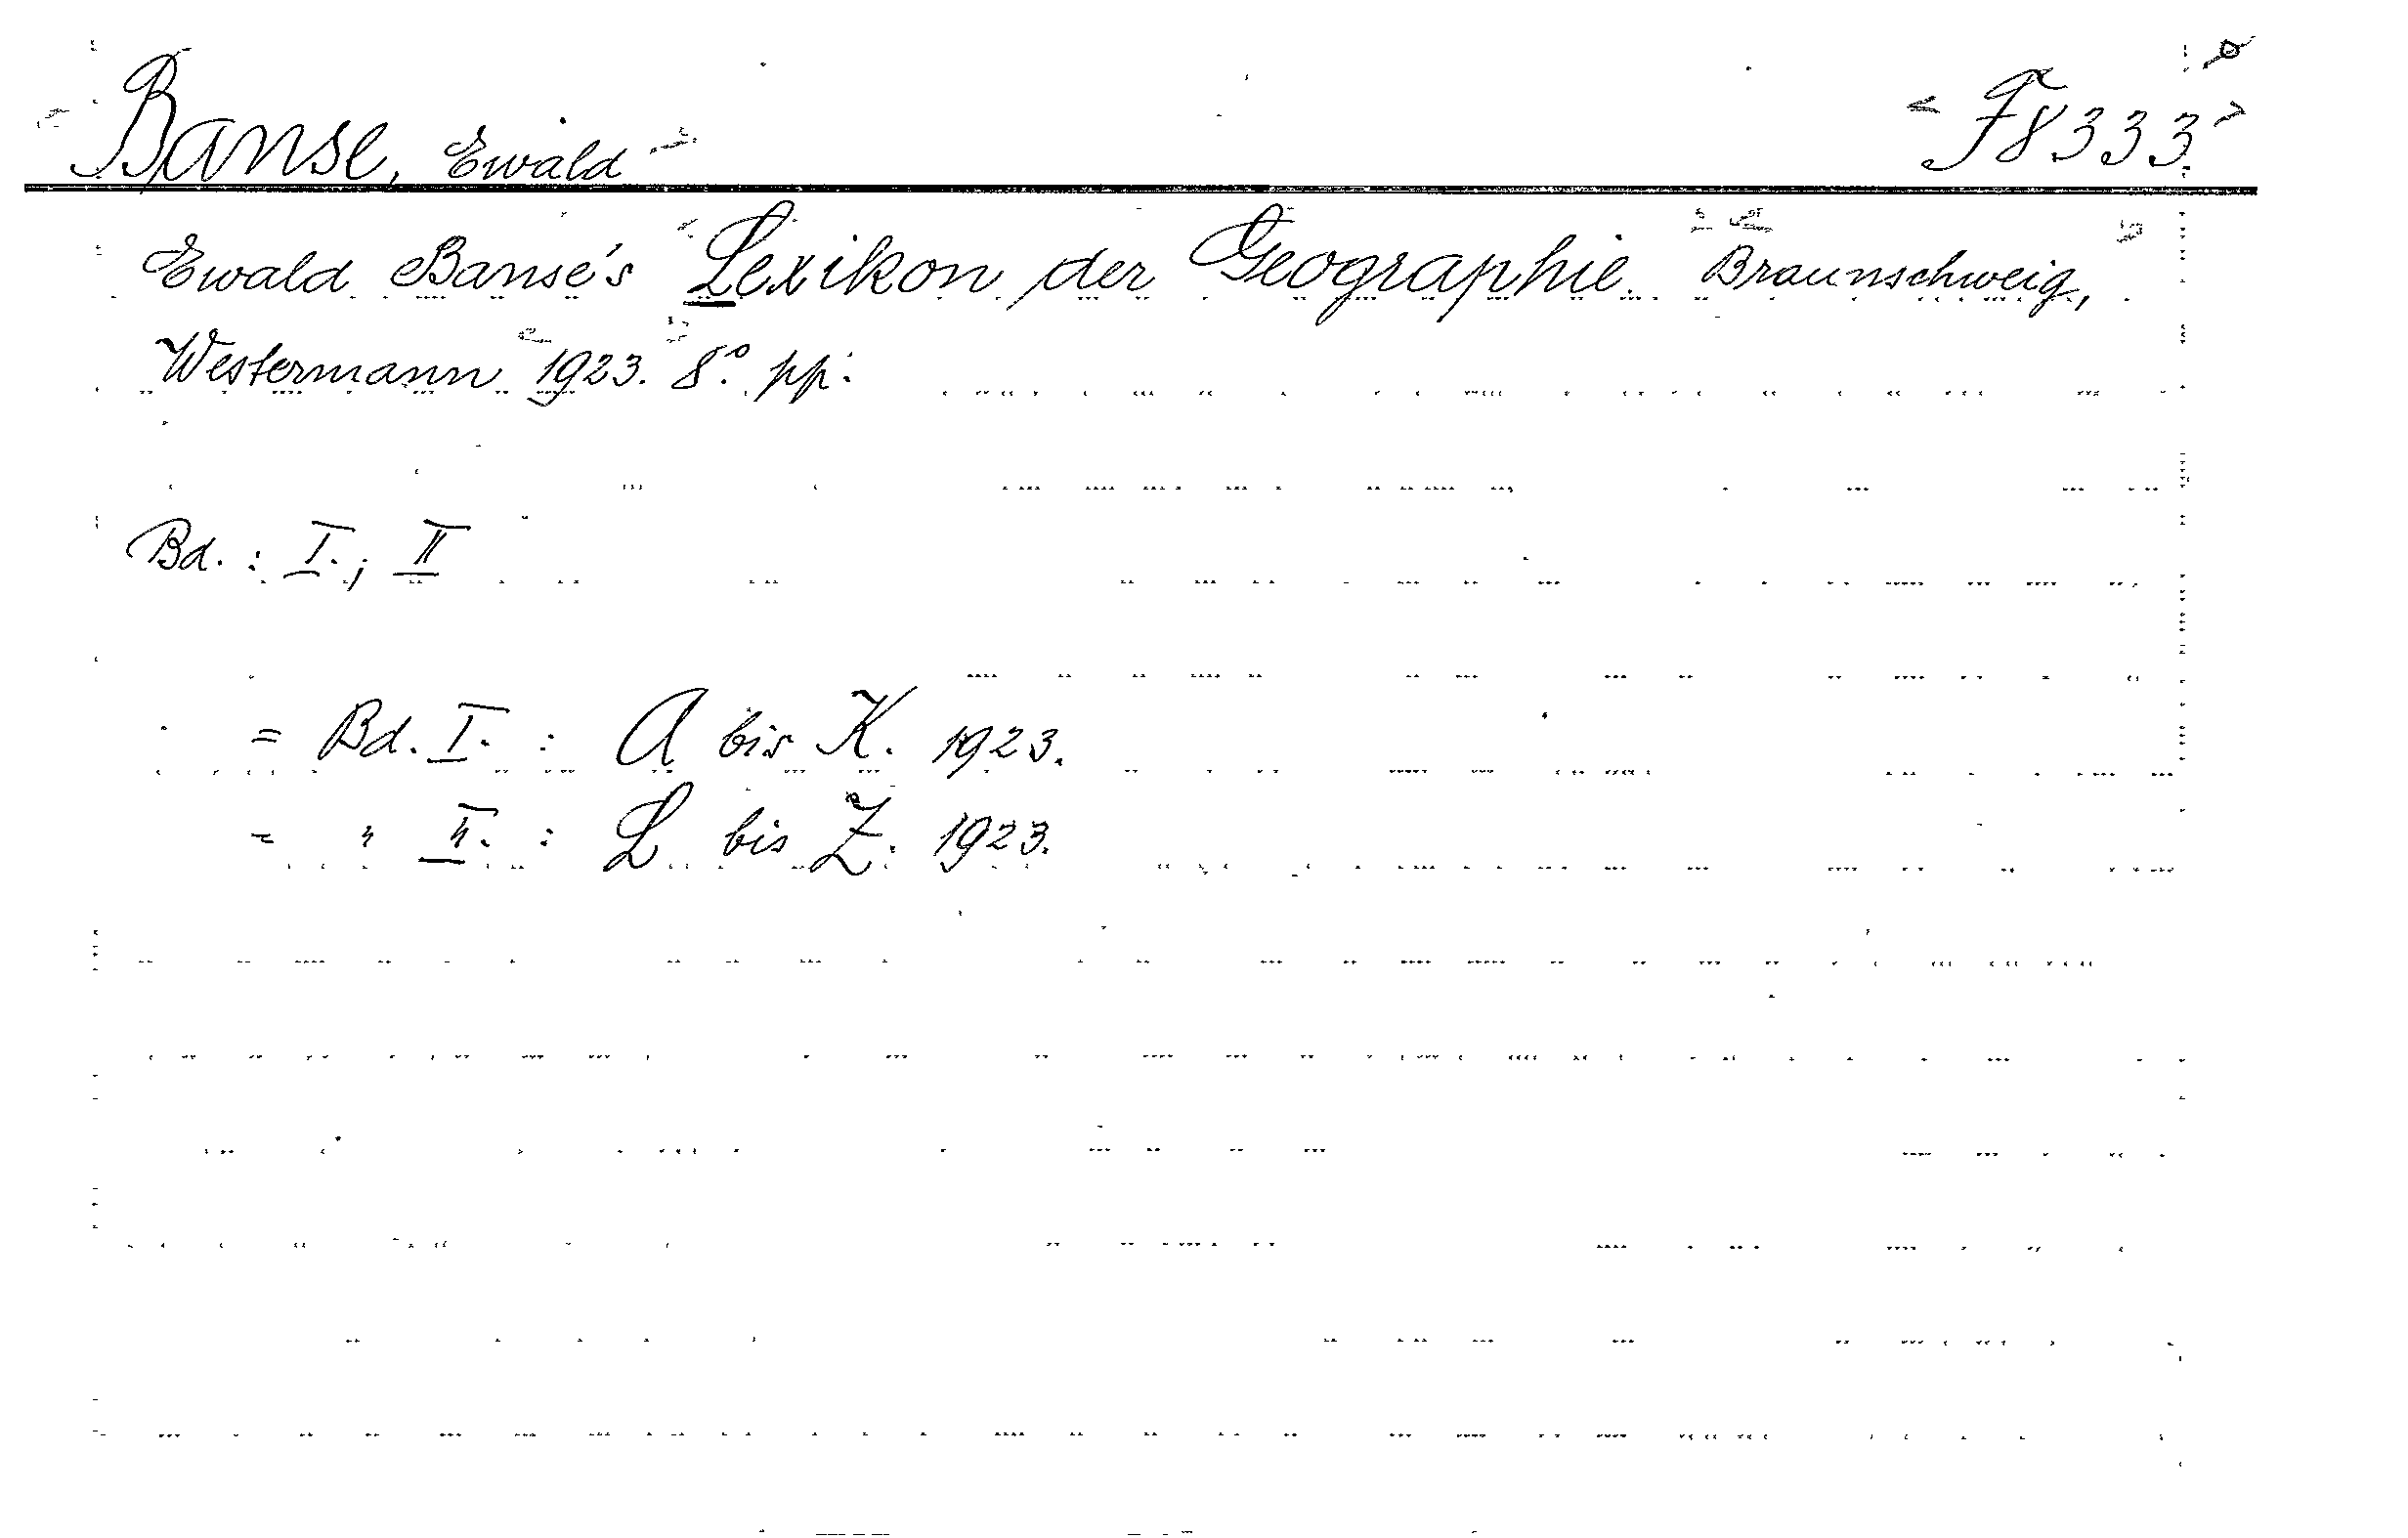 Banse, Ewald F8333.
Ewald Banse's Lexikon der Geographie. Braunschweig,
Westermann 1923. 8°. pp:
Bd.: I.; II
= Bd. I. : A bis K. 1923.
= " II. : L bis Z. 1923.